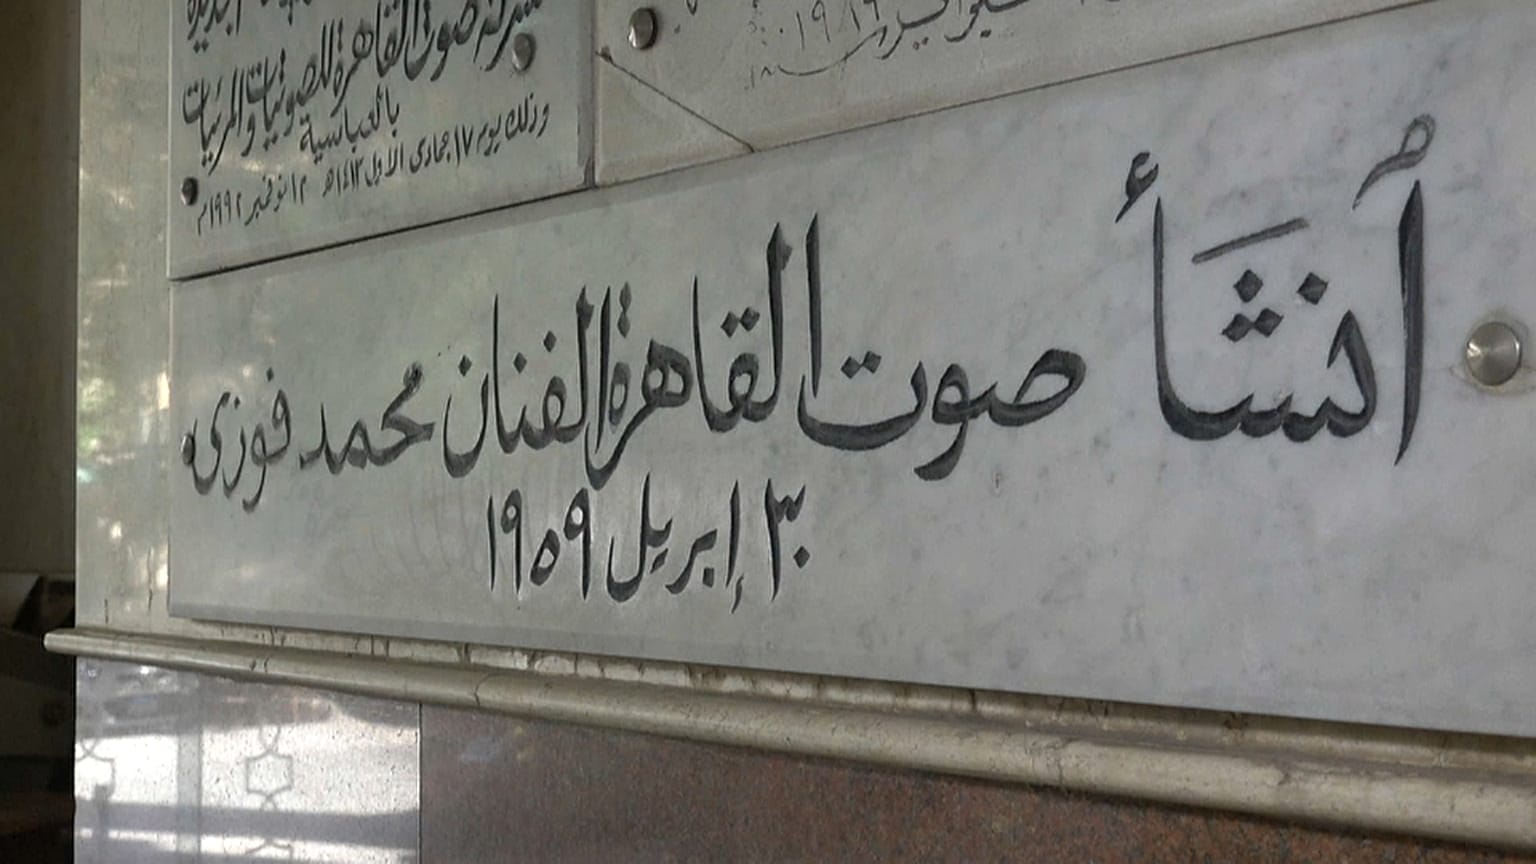 الجديدة
شركة صوت القاهرة للصوتيات والمرئيات
بالعباسية
وذلك يوم ١٧ جمادى الأول ١٤١٣هـ ١٢ نوفمبر ١٩٩٢م
١٩٨٩
أُنشَأ صوت القاهرة الفنان محمد فوزى
٣٠ إبريل ١٩٥٩